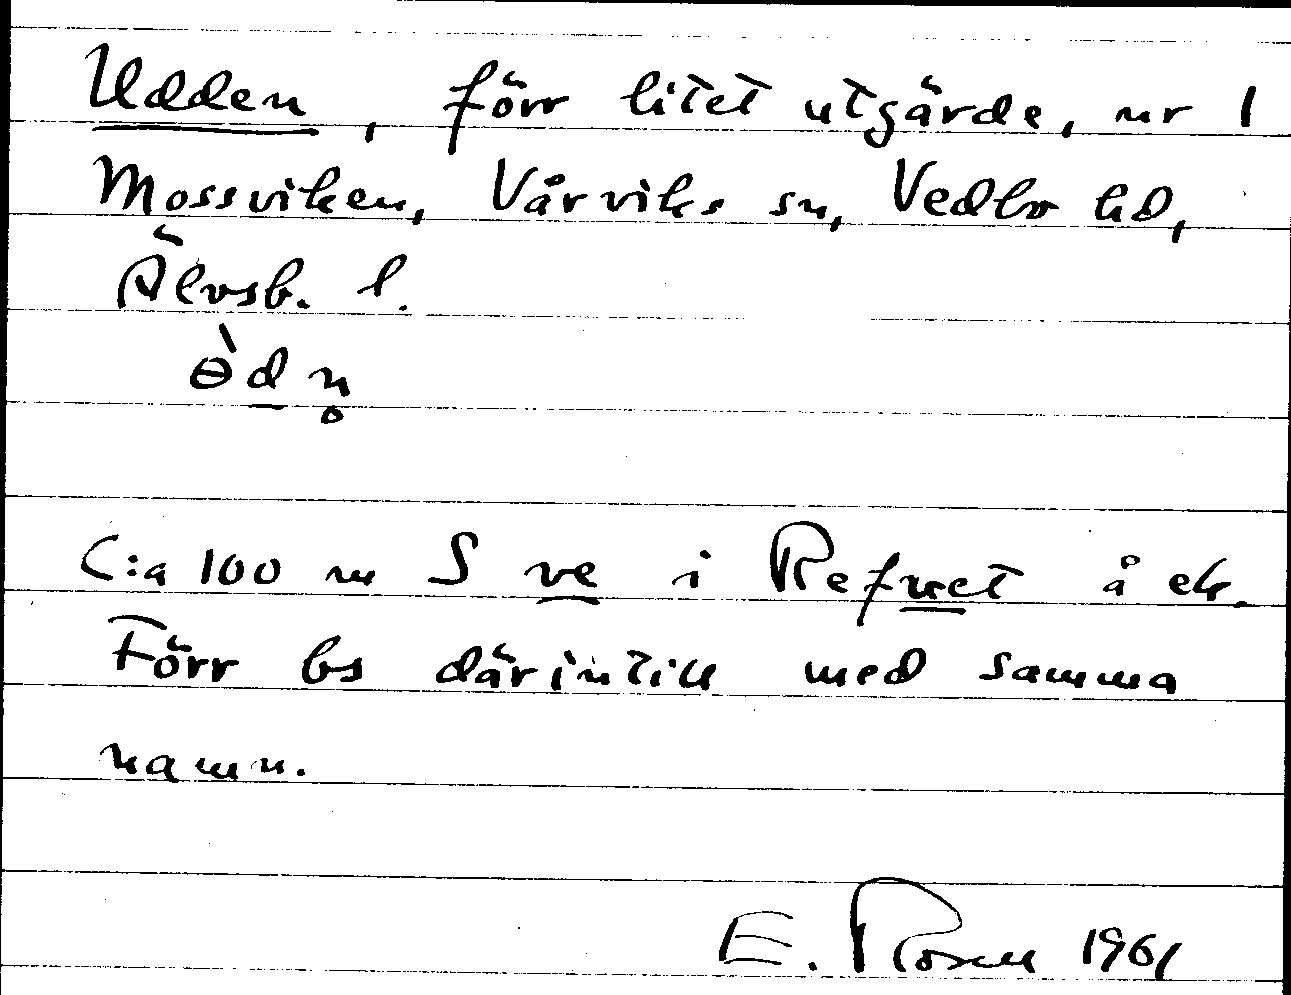 Udden, förr litet utgärde, nr 1
Mossviken, Vårviks sn, Vedbo hd,
Älvsb. l.
ɵ̀dn̥
C:a 100 m S ve i Refvet å ek.
Förr bs därintill med samma
namn.
E. Rosen 1961